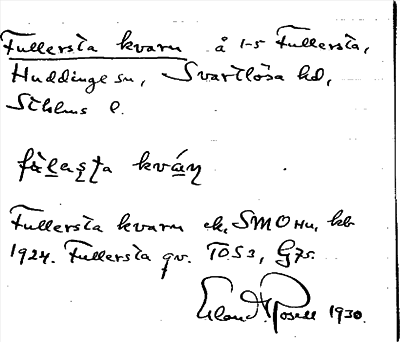 Fullersta kvarn å 1-5 Fullersta,
Huddinge sn, Svartlösa hd,
Sthlms l.
fùlaṣṭa kváṇ
Fullersta kvarn ek. SMOHu, kb
1924. Fullersta qv. TOS3, G7s.
Erland Rosell 1930.